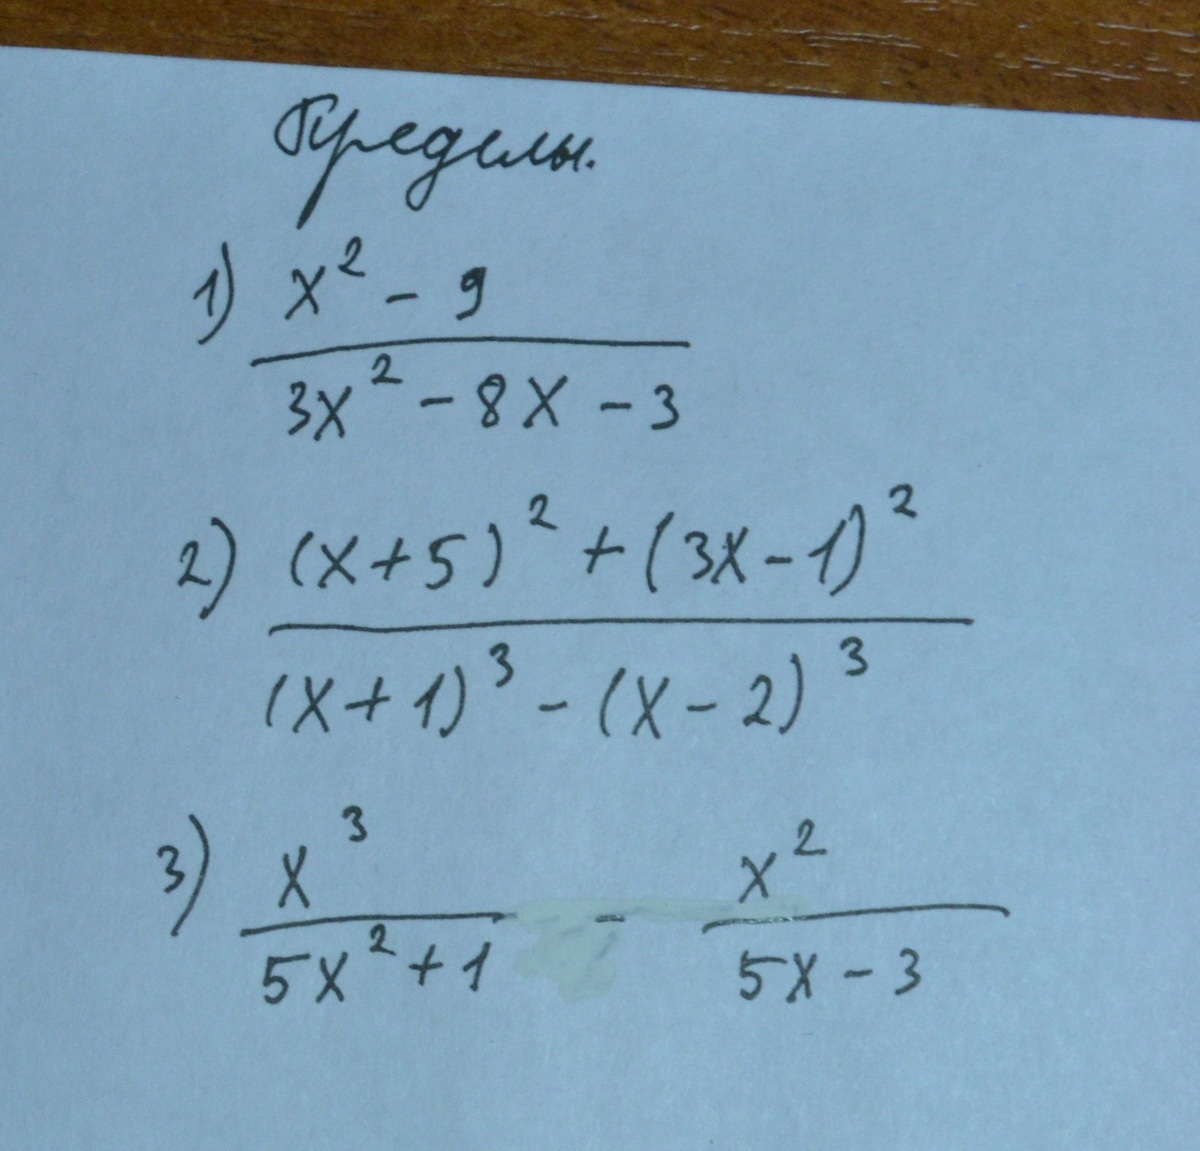 Пределы.
1) x² - 9
3x² - 8x - 3
2) (x+5)² + (3x-1)²
(x+1)³ - (x-2)³
3) x³ - x²
5x²+1 5x-3